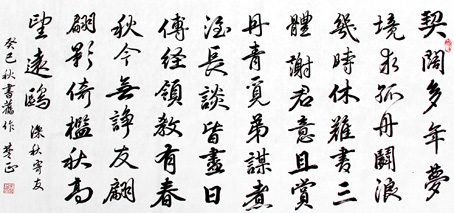 契闊多年夢
境求孤舟鬭浪
幾時休難書三
體謝君意且賞
丹青覓弟謀煮
酒長談皆盡日
傳經領教有春
秋今無諍友翩
翩影倚檻秋高
望遠鷗 深秋寄友
癸巳秋書舊作